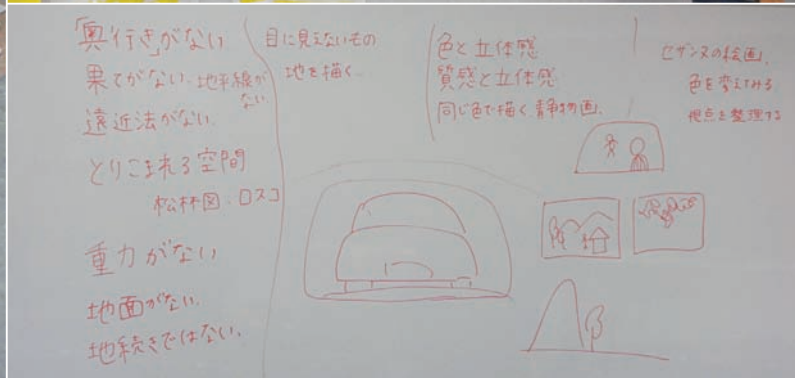 「奥行き」がない
果てがない、地平線が
ない
遠近法がない
とりこまれる空間
松林図、ロスコ
重力がない
地面がない、
地続きではない、
目に見えないもの
地を描く
色と立体感
質感と立体感
同じ色で描く静物画、
セザンヌの絵画、
色を変えてみる
視点を整理する